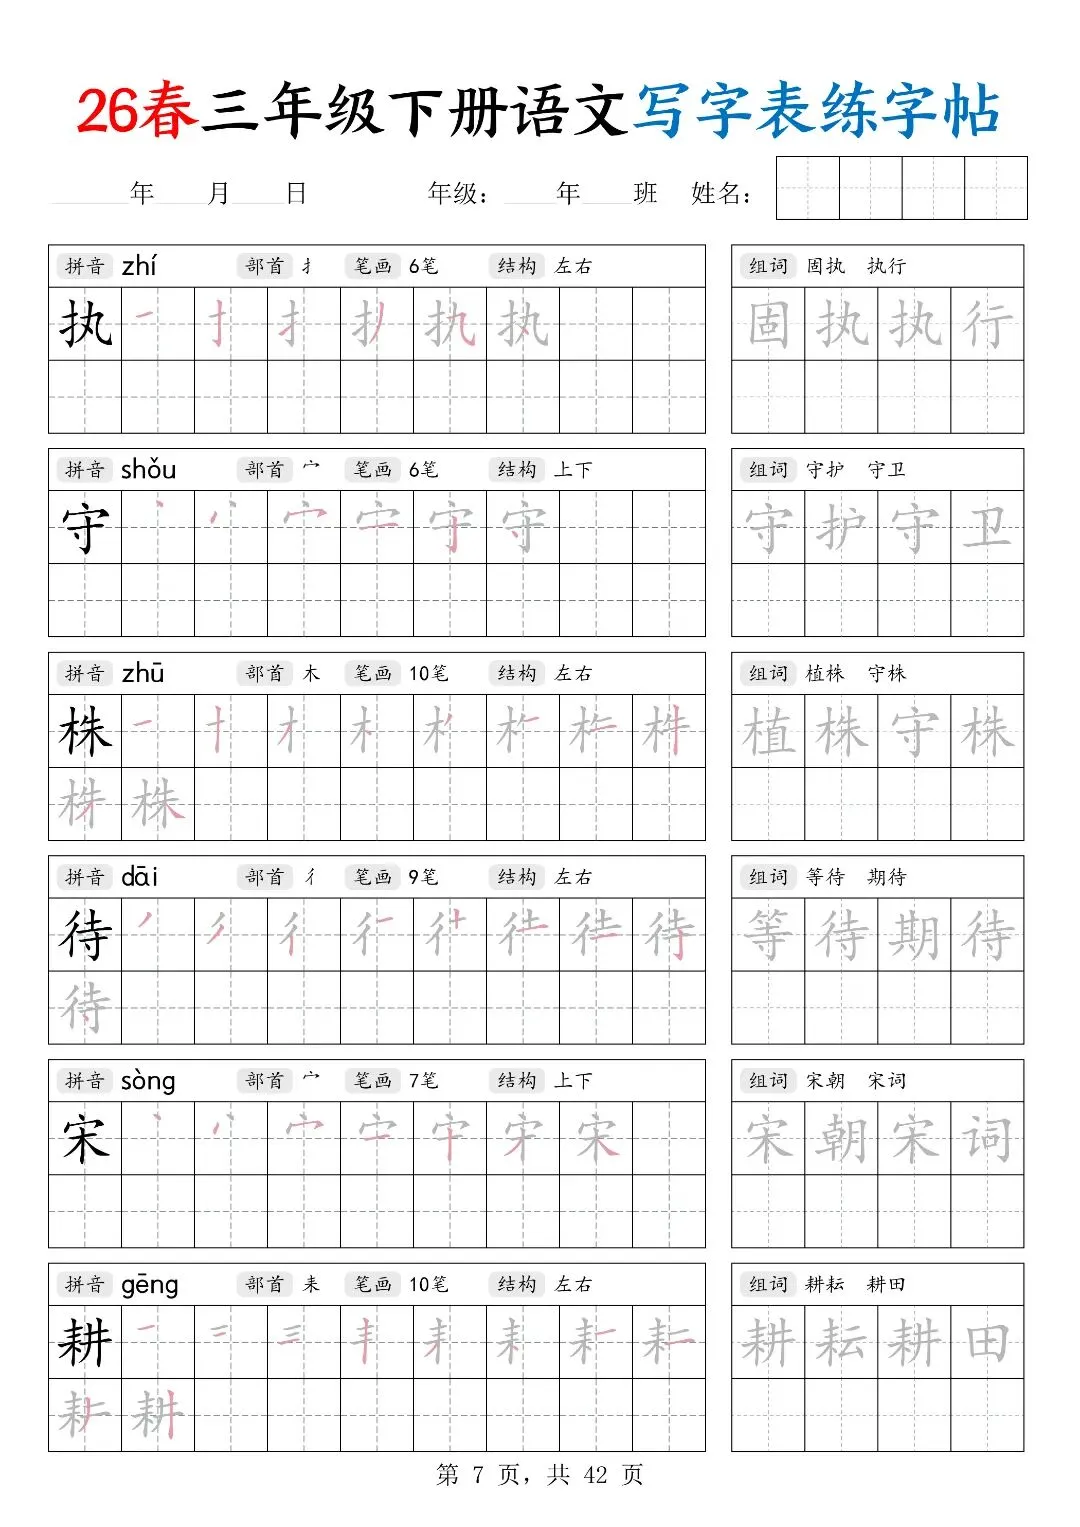 26春三年级下册语文写字表练字帖
年 月 日 年级： 年 班 姓名：
拼音 zhí 部首 扌 笔画 6笔 结构 左右 组词 固执 执行
执 执 固执执行
拼音 shǒu 部首 宀 笔画 6笔 结构 上下 组词 守护 守卫
守 守 守护守卫
拼音 zhū 部首 木 笔画 10笔 结构 左右 组词 植株 守株
株 植株守株
株 株
拼音 dāi 部首 彳 笔画 9笔 结构 左右 组词 等待 期待
待 待 等待期待
待
拼音 sòng 部首 宀 笔画 7笔 结构 上下 组词 宋朝 宋词
宋 宋 宋朝宋词
拼音 gēng 部首 耒 笔画 10笔 结构 左右 组词 耕耘 耕田
耕 耕耘耕田
耕
第 7 页，共 42 页